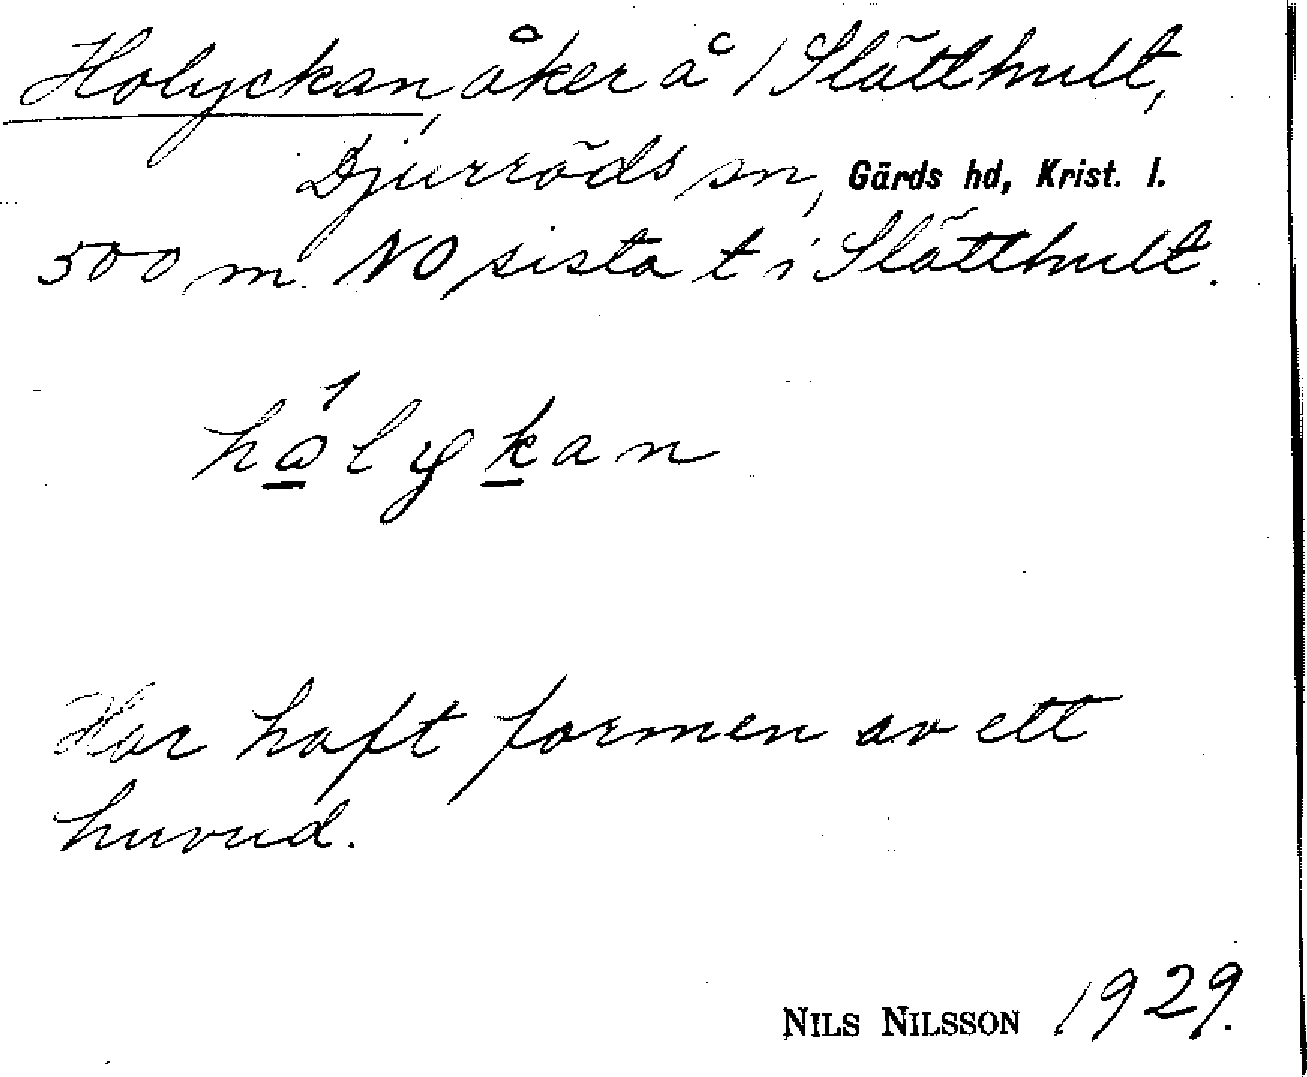 Holyckan, åker å 1 Slätthult,
Djurröds sn, Gärds hd, Krist. l.
500 m. NO sista t i Slätthult.
hålykan
Har haft formen av ett
huvud.
NILS NILSSON 1929.